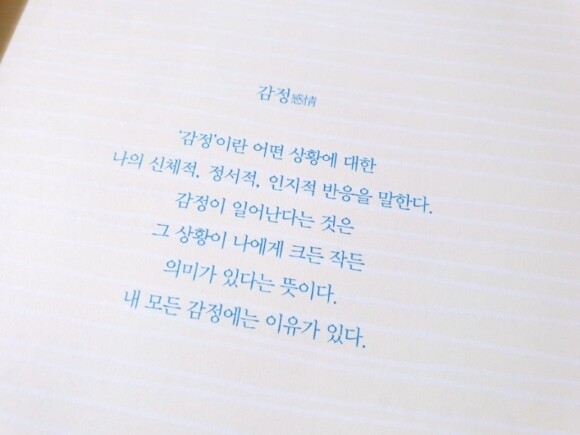 감정感情
'감정'이란 어떤 상황에 대한
나의 신체적, 정서적, 인지적 반응을 말한다.
감정이 일어난다는 것은
그 상황이 나에게 크든 작든
의미가 있다는 뜻이다.
내 모든 감정에는 이유가 있다.